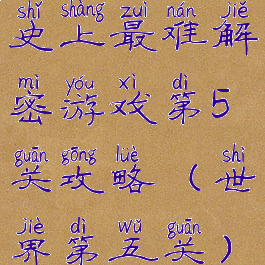 shǐ shàng zuì nán jiě
史上最难解
mì yóu xì dì
密游戏第5
guān gōng lüè shì
关攻略（世
jiè dì wǔ guān
界第五关）